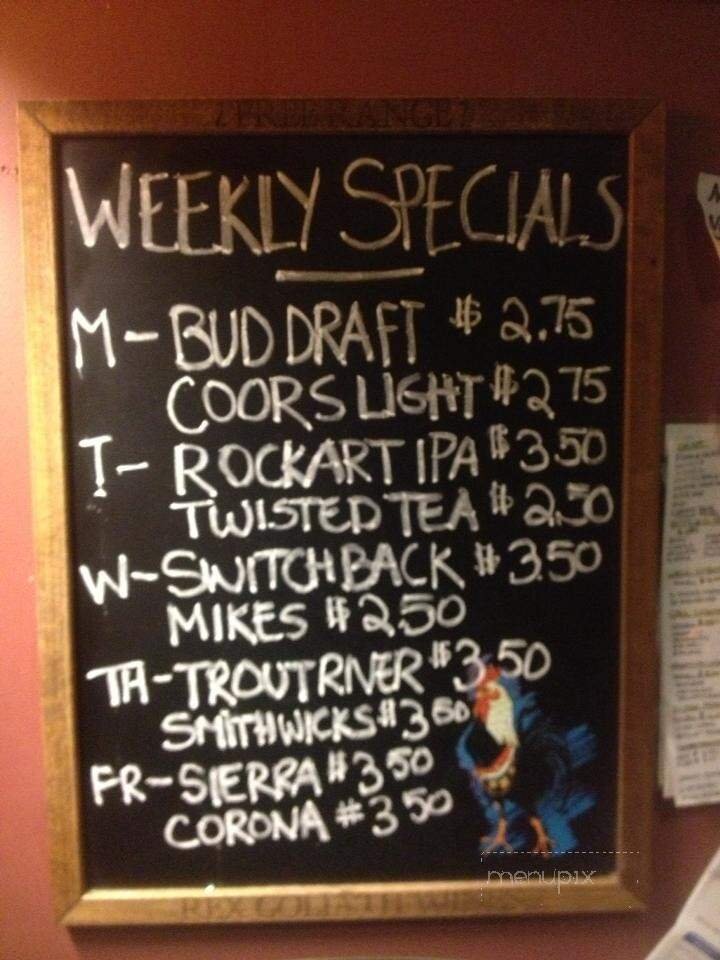 FREE RANGE
WEEKLY SPECIALS
M- BUD DRAFT $ 2.75
COORS LIGHT $2 75
T- ROCKART IPA $3.50
TWISTED TEA $ 2.50
W-SWITCHBACK $3.50
MIKES $2.50
TH-TROUT RIVER $3.50
SMITHWICKS $3 50
FR-SIERRA #3 50
CORONA #3 50
menupix
REX GOLIATH